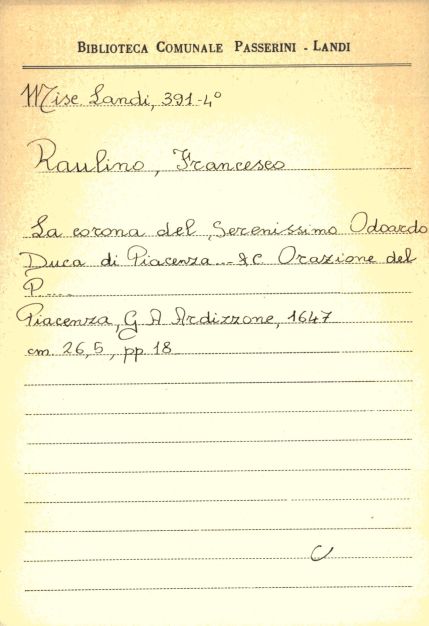 BIBLIOTECA COMUNALE PASSERINI - LANDI
Misc Landi, 391-4°
Raulino, Francesco
La corona del Serenissimo Odoardo
Duca di Piacenza...&C Orazione del
P....
Piacenza, G A Ardizzone, 1647
cm. 26,5, pp 18
C